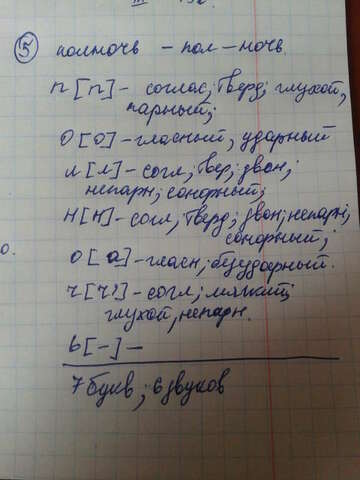 5 полночь - пол-ночь.
п [п] - соглас; тверд; глухой,
парный;
о [о] - гласный, ударный
л [л] - согл; твер; звон;
непарн; сонорный;
н [н] - согл; тверд; звон; непарн;
сонорный;
о [а] - гласн; безударный.
ч [ч'] - согл; мягкий;
глухой, непарн.
ь [-] -
7 букв; 6 звуков